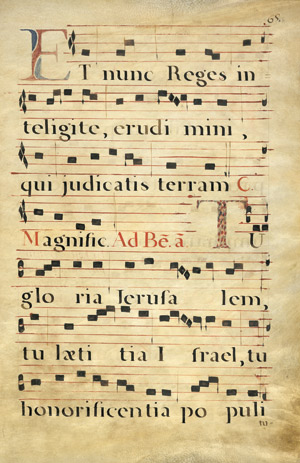 65.
ET nunc Reges in
teligite, erudi mini,
qui judicatis terram C.
Magnific. Ad Bē. ā TU
glo ria Jerusa lem,
tu læti tia I srael, tu
honorificentia po puli
tu-